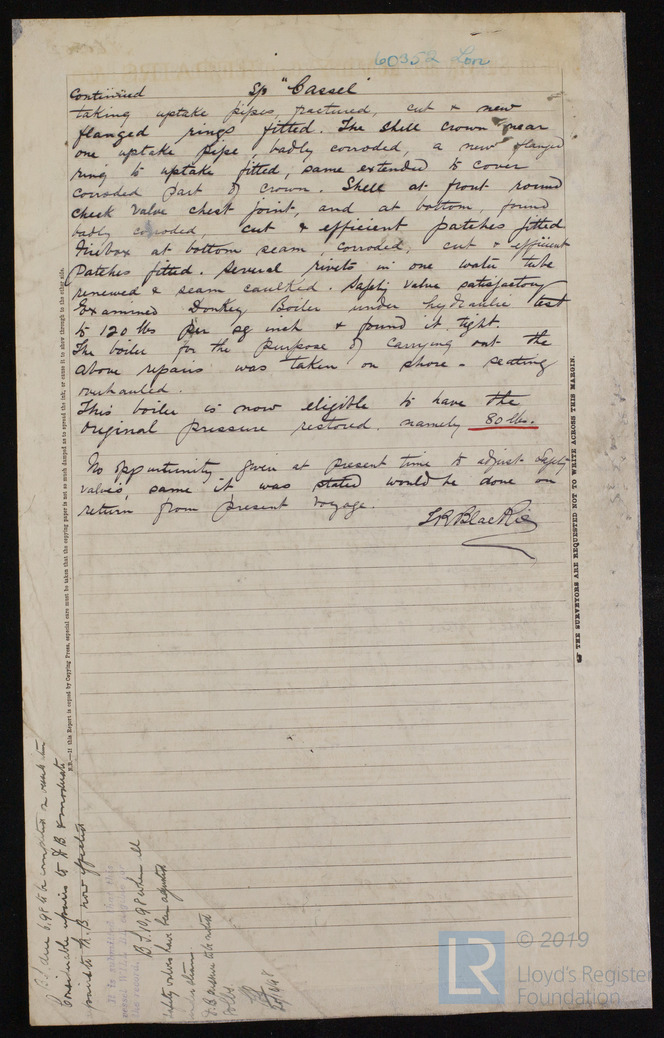 60352 Lon
Continued S/S "Cassel"
taking uptake pipes fractured, cut & new
flanged rings fitted. The shell crown near
one uptake pipe, badly corroded, a new flanged
ring to uptake fitted, same extended to cover
corroded part of crown. Shell at front round
check valve chest joint, and at bottom, found
badly corroded, cut & efficient patches fitted
Firebox at bottom seam, corroded, cut & efficient
Patches fitted. Several rivets in one water tube
renewed & seam caulked. Safety valve satisfactory
Examined Donkey Boiler under hydraulic test
to 120 lbs per sq inch & found it tight.
The boiler for the purpose of carrying out the
above repairs was taken on shore - seating
overhauled.
This boiler is now eligible to have the
original pressure restored. namely 80 lbs.
No opportunity given at present time to adjust safety
valves, same it was stated would be done on
return from present voyage.
LR Blackie
N.B.—If this Report is copied by Copying Press, especial care must be taken that the copying paper is not so much damped as to spread the ink, or cause it to show through to the other side.
THE SURVEYORS ARE REQUESTED NOT TO WRITE ACROSS THIS MARGIN.
Considerable repairs to D B & moderate
to M.B now effected
It is submitted that this
B.S. 10.98 when all
safety valves have been adjusted
LR © 2019
Lloyd's Register
Foundation